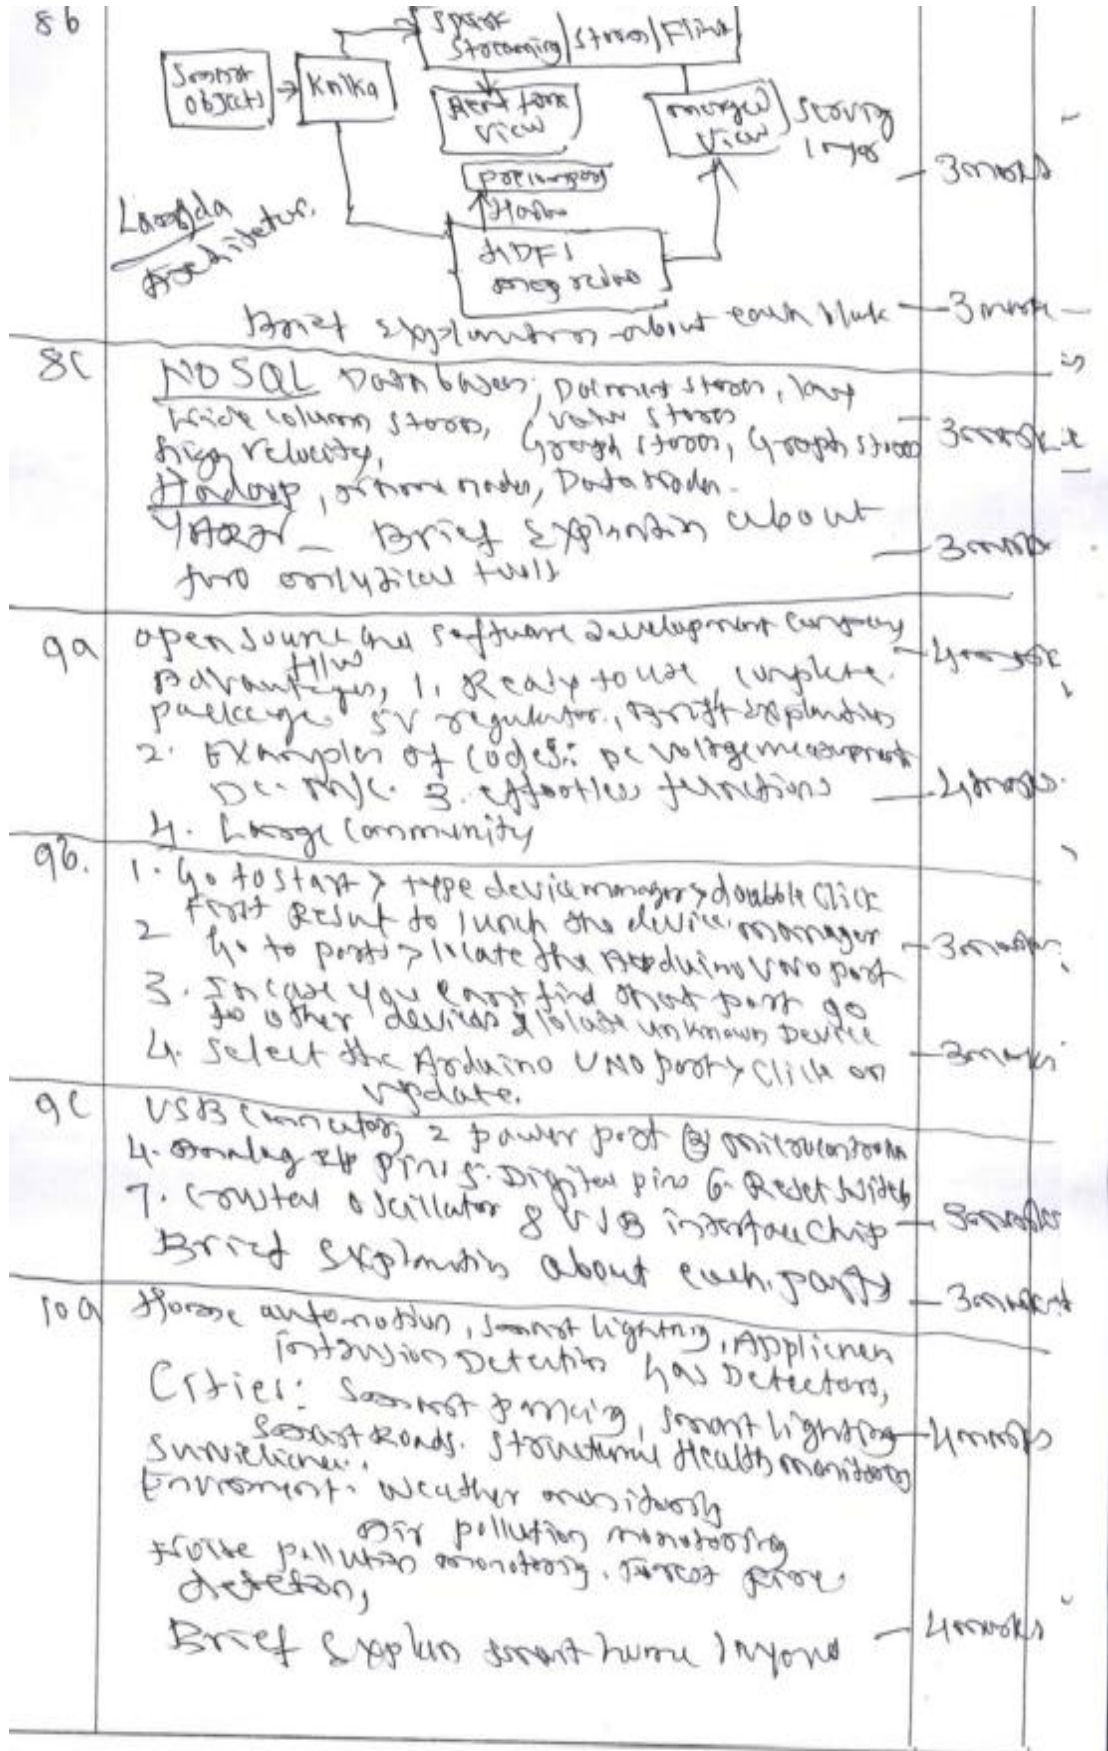 8b
Spark
Streaming/Storm/Flink
Smart
objects
Kafka
Real time
view
merged
view
Serving
layer
3marks
Lambda
Architetur.
HDFS
mapreduce
Brief explanation about each block - 3mark
8C NO SQL Data bases, Document stores, key
wide column stores, value stores
high velocity, Graph stores, Graph stores 3marks
Hadoop, name nodes, Data nodes.
YARN - Brief Explantion about
two analytical tools - 3marks
9a open source and software development company - 4marks
H/W
Advantages, 1. Ready to use complete
package 5V regulator, Brief explantion
2. Examples of codes: DC voltage measurment
3. effortless functions - 4marks.
4. Large Community
9b. 1. Go to start > type device manager > doubble Click
First Result to lunch the device manager
2 Go to ports > locate the Arduino UNO port - 3marks
3. In case you cant find that port go
to other devices & locate unknown Device
4. Select the Arduino UNO port > Click on - 3marks
update.
9C USB Connector, 2 power port 3 microcontroller
4. Analog I/P pins 5. Digital pins 6. Reset Switch
7. Crystal oscillator 8 USB interface chip
Brief explantion about each parts - 3marks
10a Home automation, Smart lighting, Appliences
Intrusion Detection Gas Detectors,
Cities: Smart parking, Smart lighting - 4marks
Smart Roads. Structural Health monitoring
Survielience.
Enviroment. Weather monitoring
Air pollution monotoring
Noise pollution monotoring. Forest fire.
detetion,
Brief Explan smart home - 4marks